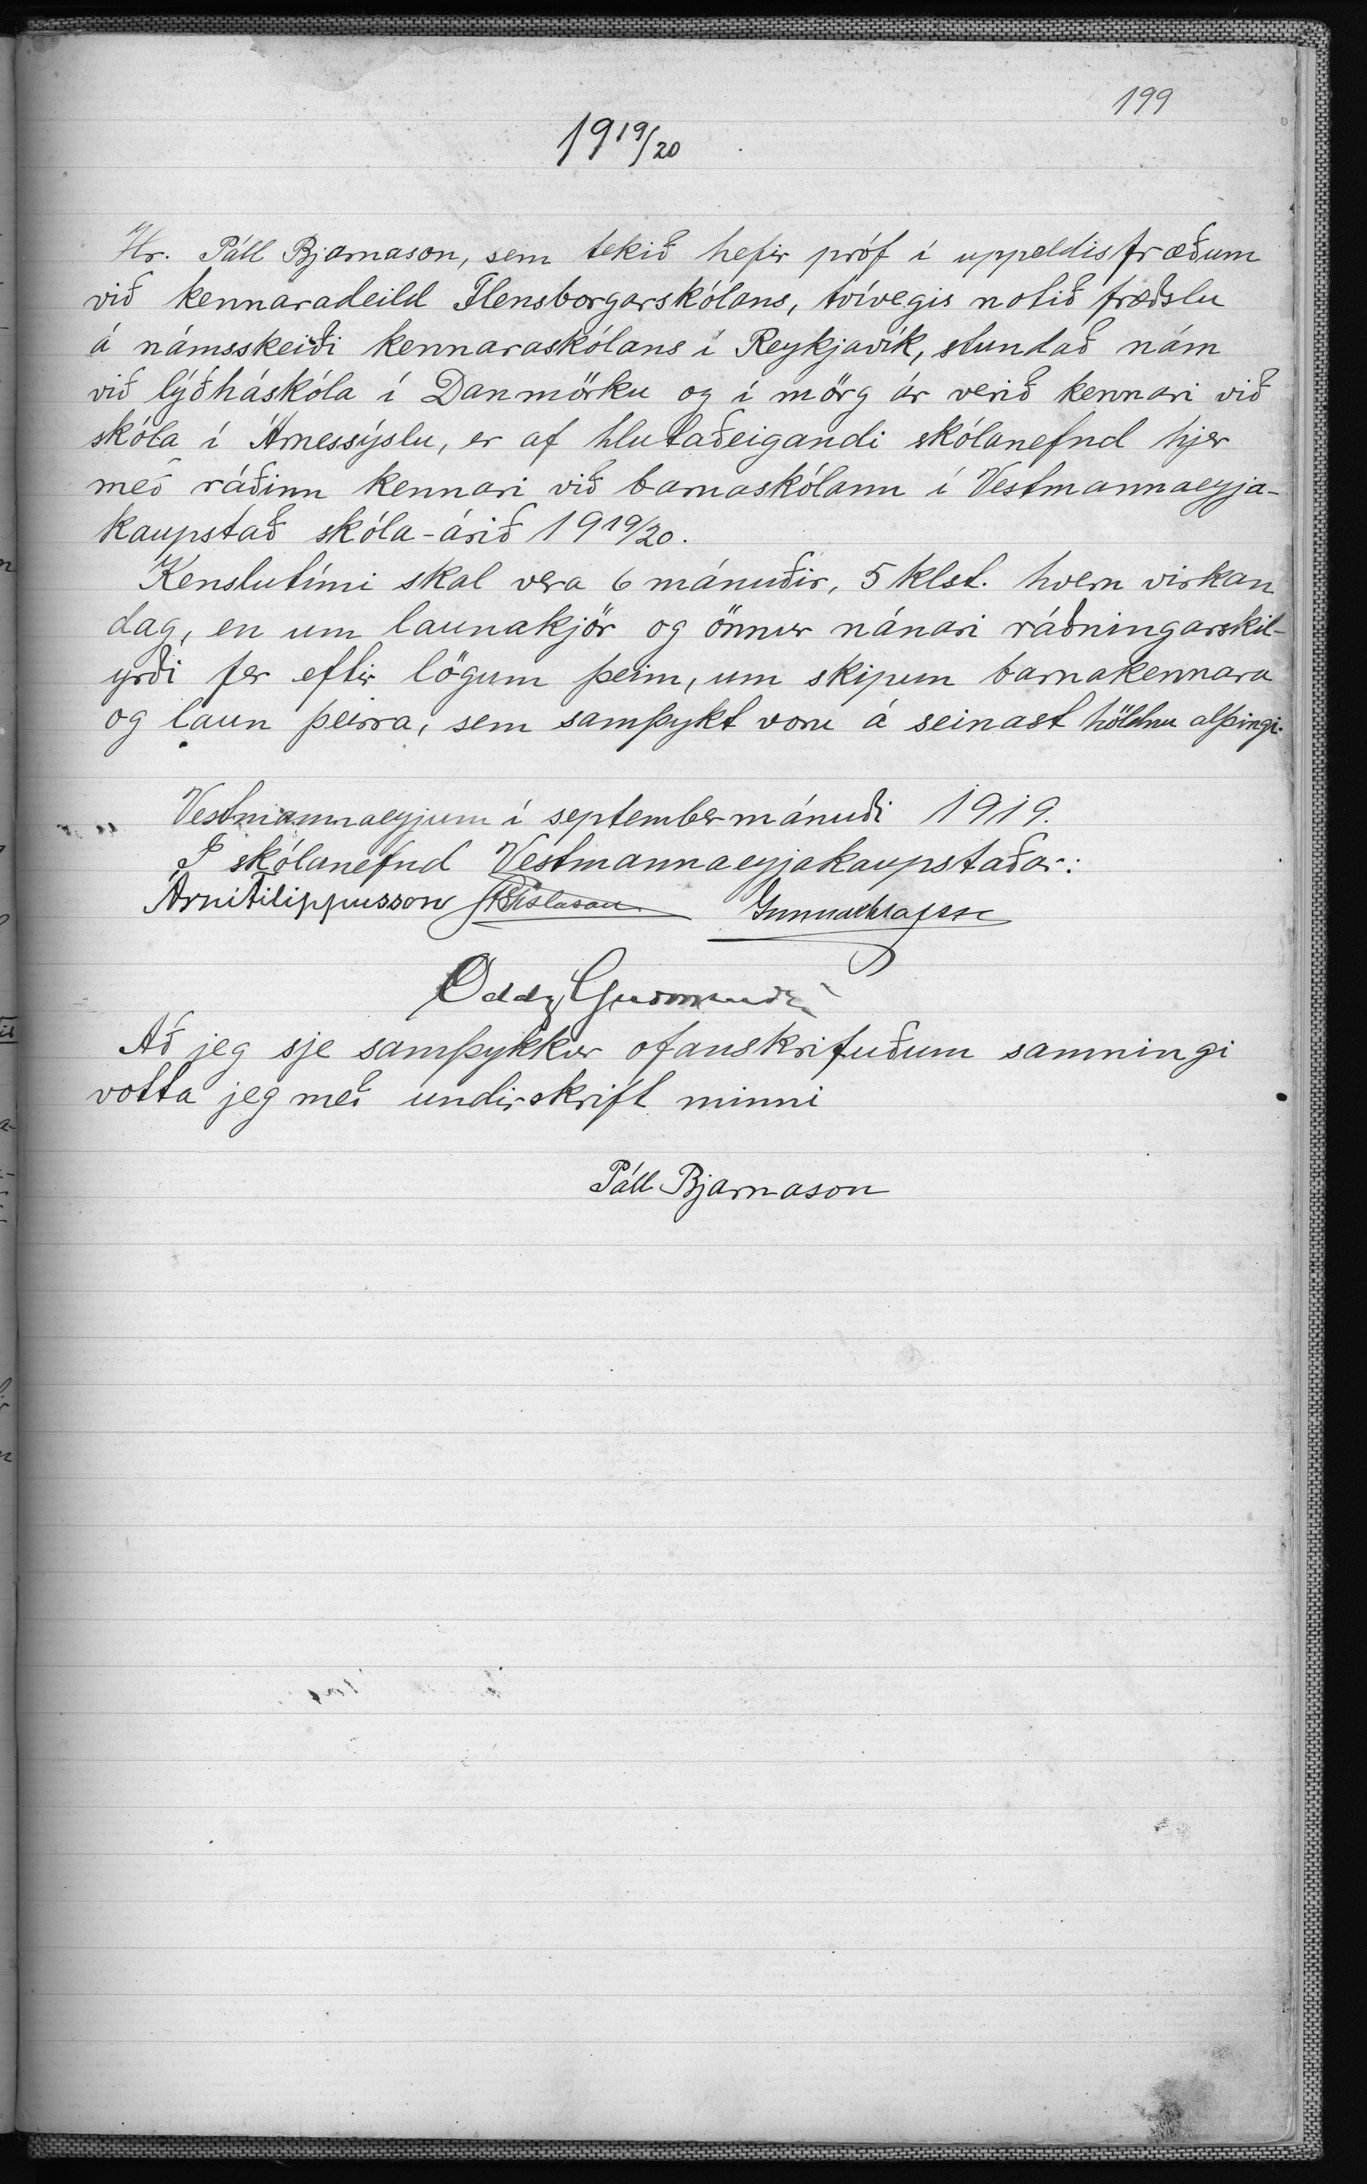 199
1919/20
Hr. Páll Bjarnason, sem tekið hefir próf í uppeldisfræðum
við kennaradeild Flensborgarskólans, tvívegis notið fræðslu
á námsskeiði kennaraskólans í Reykjavík, stundað nám
við lýðháskóla í Danmörku og í mörg ár verið kennari við
skóla í Árnessýslu, er af hlutaðeigandi skólanefnd hjer
með ráðinn kennari við barnaskólann í Vestmannaeyja-
kaupstað skóla-árið 1919/20.
Kenslutími skal vera 6 mánuðir, 5 klst. hvern virkan
dag, en um launakjör og önnur nánari ráðningarskil-
yrði fer eftir lögum þeim, um skipun barnakennara
og laun þeirra, sem samþykt voru á seinast höldnu alþingi.
Vestmannaeyjum í septembermánuði 1919.
Í skólanefnd Vestmannaeyjakaupstaðar:
Árni Filippusson Gíslason Gunnar Ólafsson
Oddg Guðmunds
Að jeg sje samþykkur ofanskrifuðum samningi
votta jeg með undirskrift minni
Páll Bjarnason